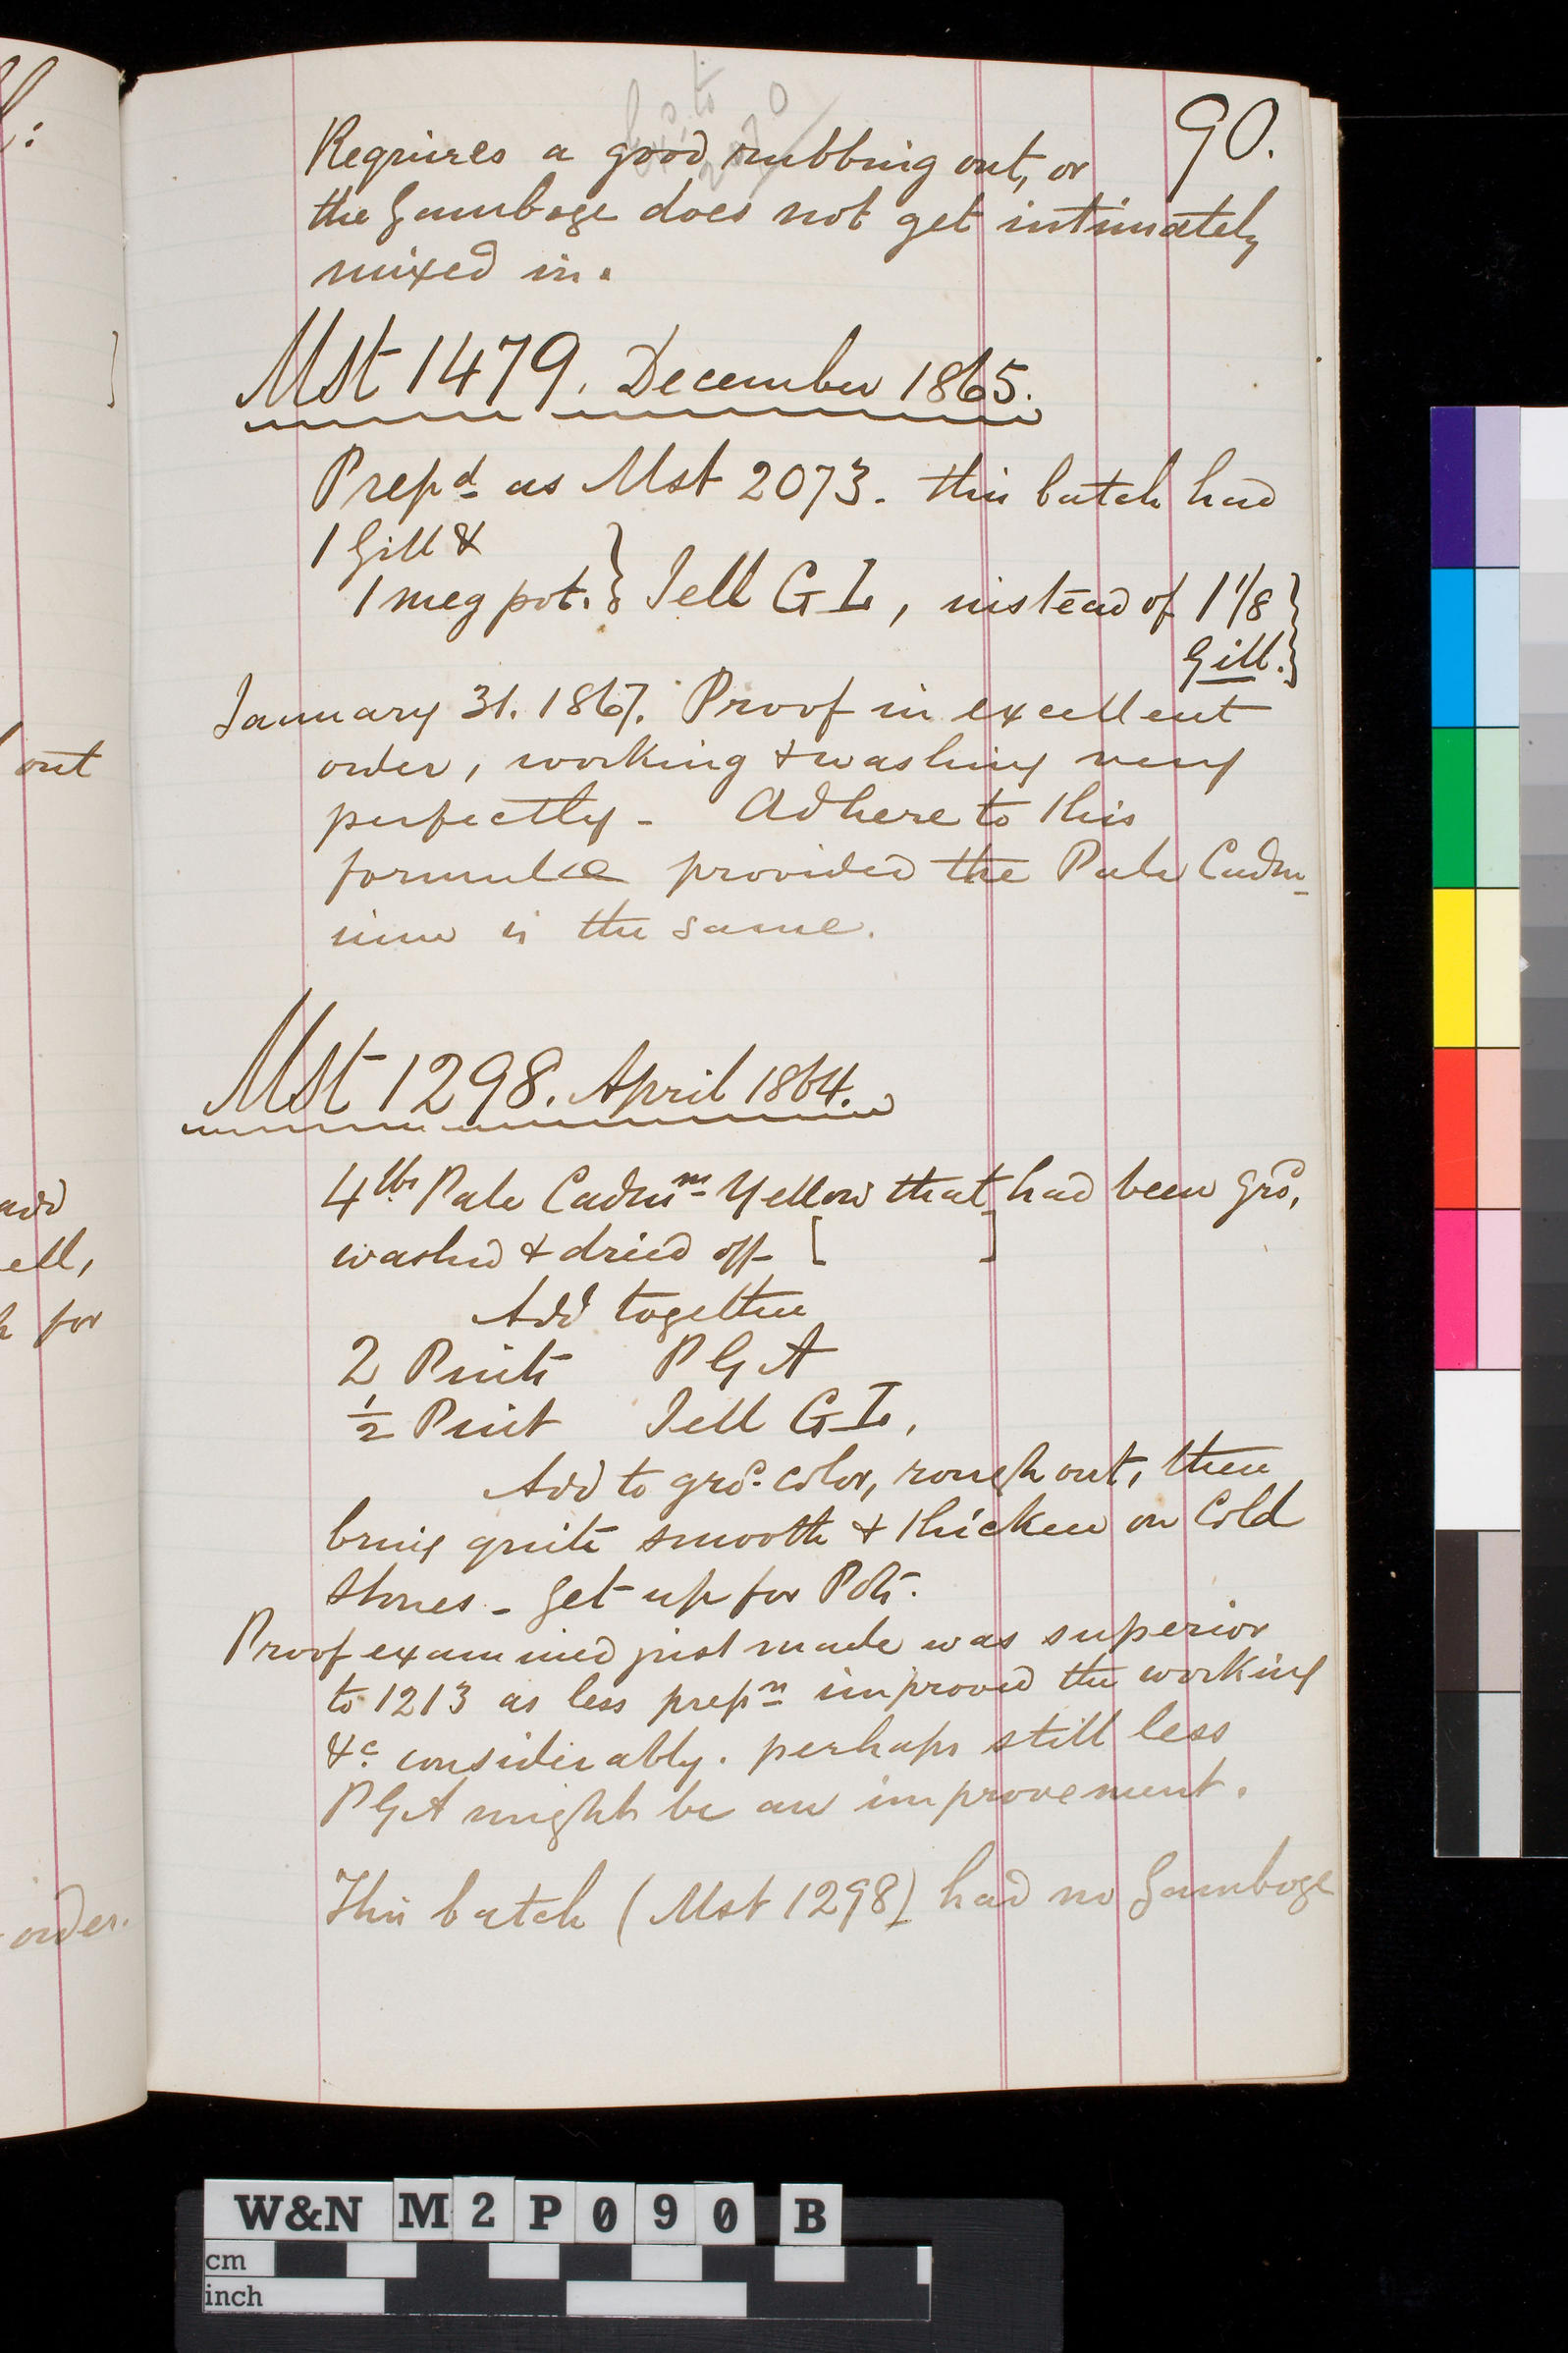 90.
Requires a good rubbing out, or
the Gamboge does not get intimately
mixed in.
Mst 1479. December 1865.
Prepd as Mst 2073. this batch had
1 Gill &
1 meg pot. } Jell G I, instead of 1 1/8
Gill. }
January 31. 1867. Proof in excellent
order, working & washing very
perfectly - Adhere to this
formulae provided the Pale Cadm-
ium is the same.
Mst 1298. April 1864.
4 lbs Pale Cadmm Yellow that had been grd,
washd & dried off [ ]
Add together
2 Pints P G A
1/2 Pint Jell G I,
Add to grd. color, rough out, then
bring quite smooth & thicken on Cold
Stones - get up for Pots.
Proof examined just made was superior
to 1213 as less prepn improved the working
&c considerably. perhaps still less
P G A might be an improvement.
This batch (Mst 1298) had no Gamboge
out
add
ell,
for
order.
W&N M2P090 B
cm
inch